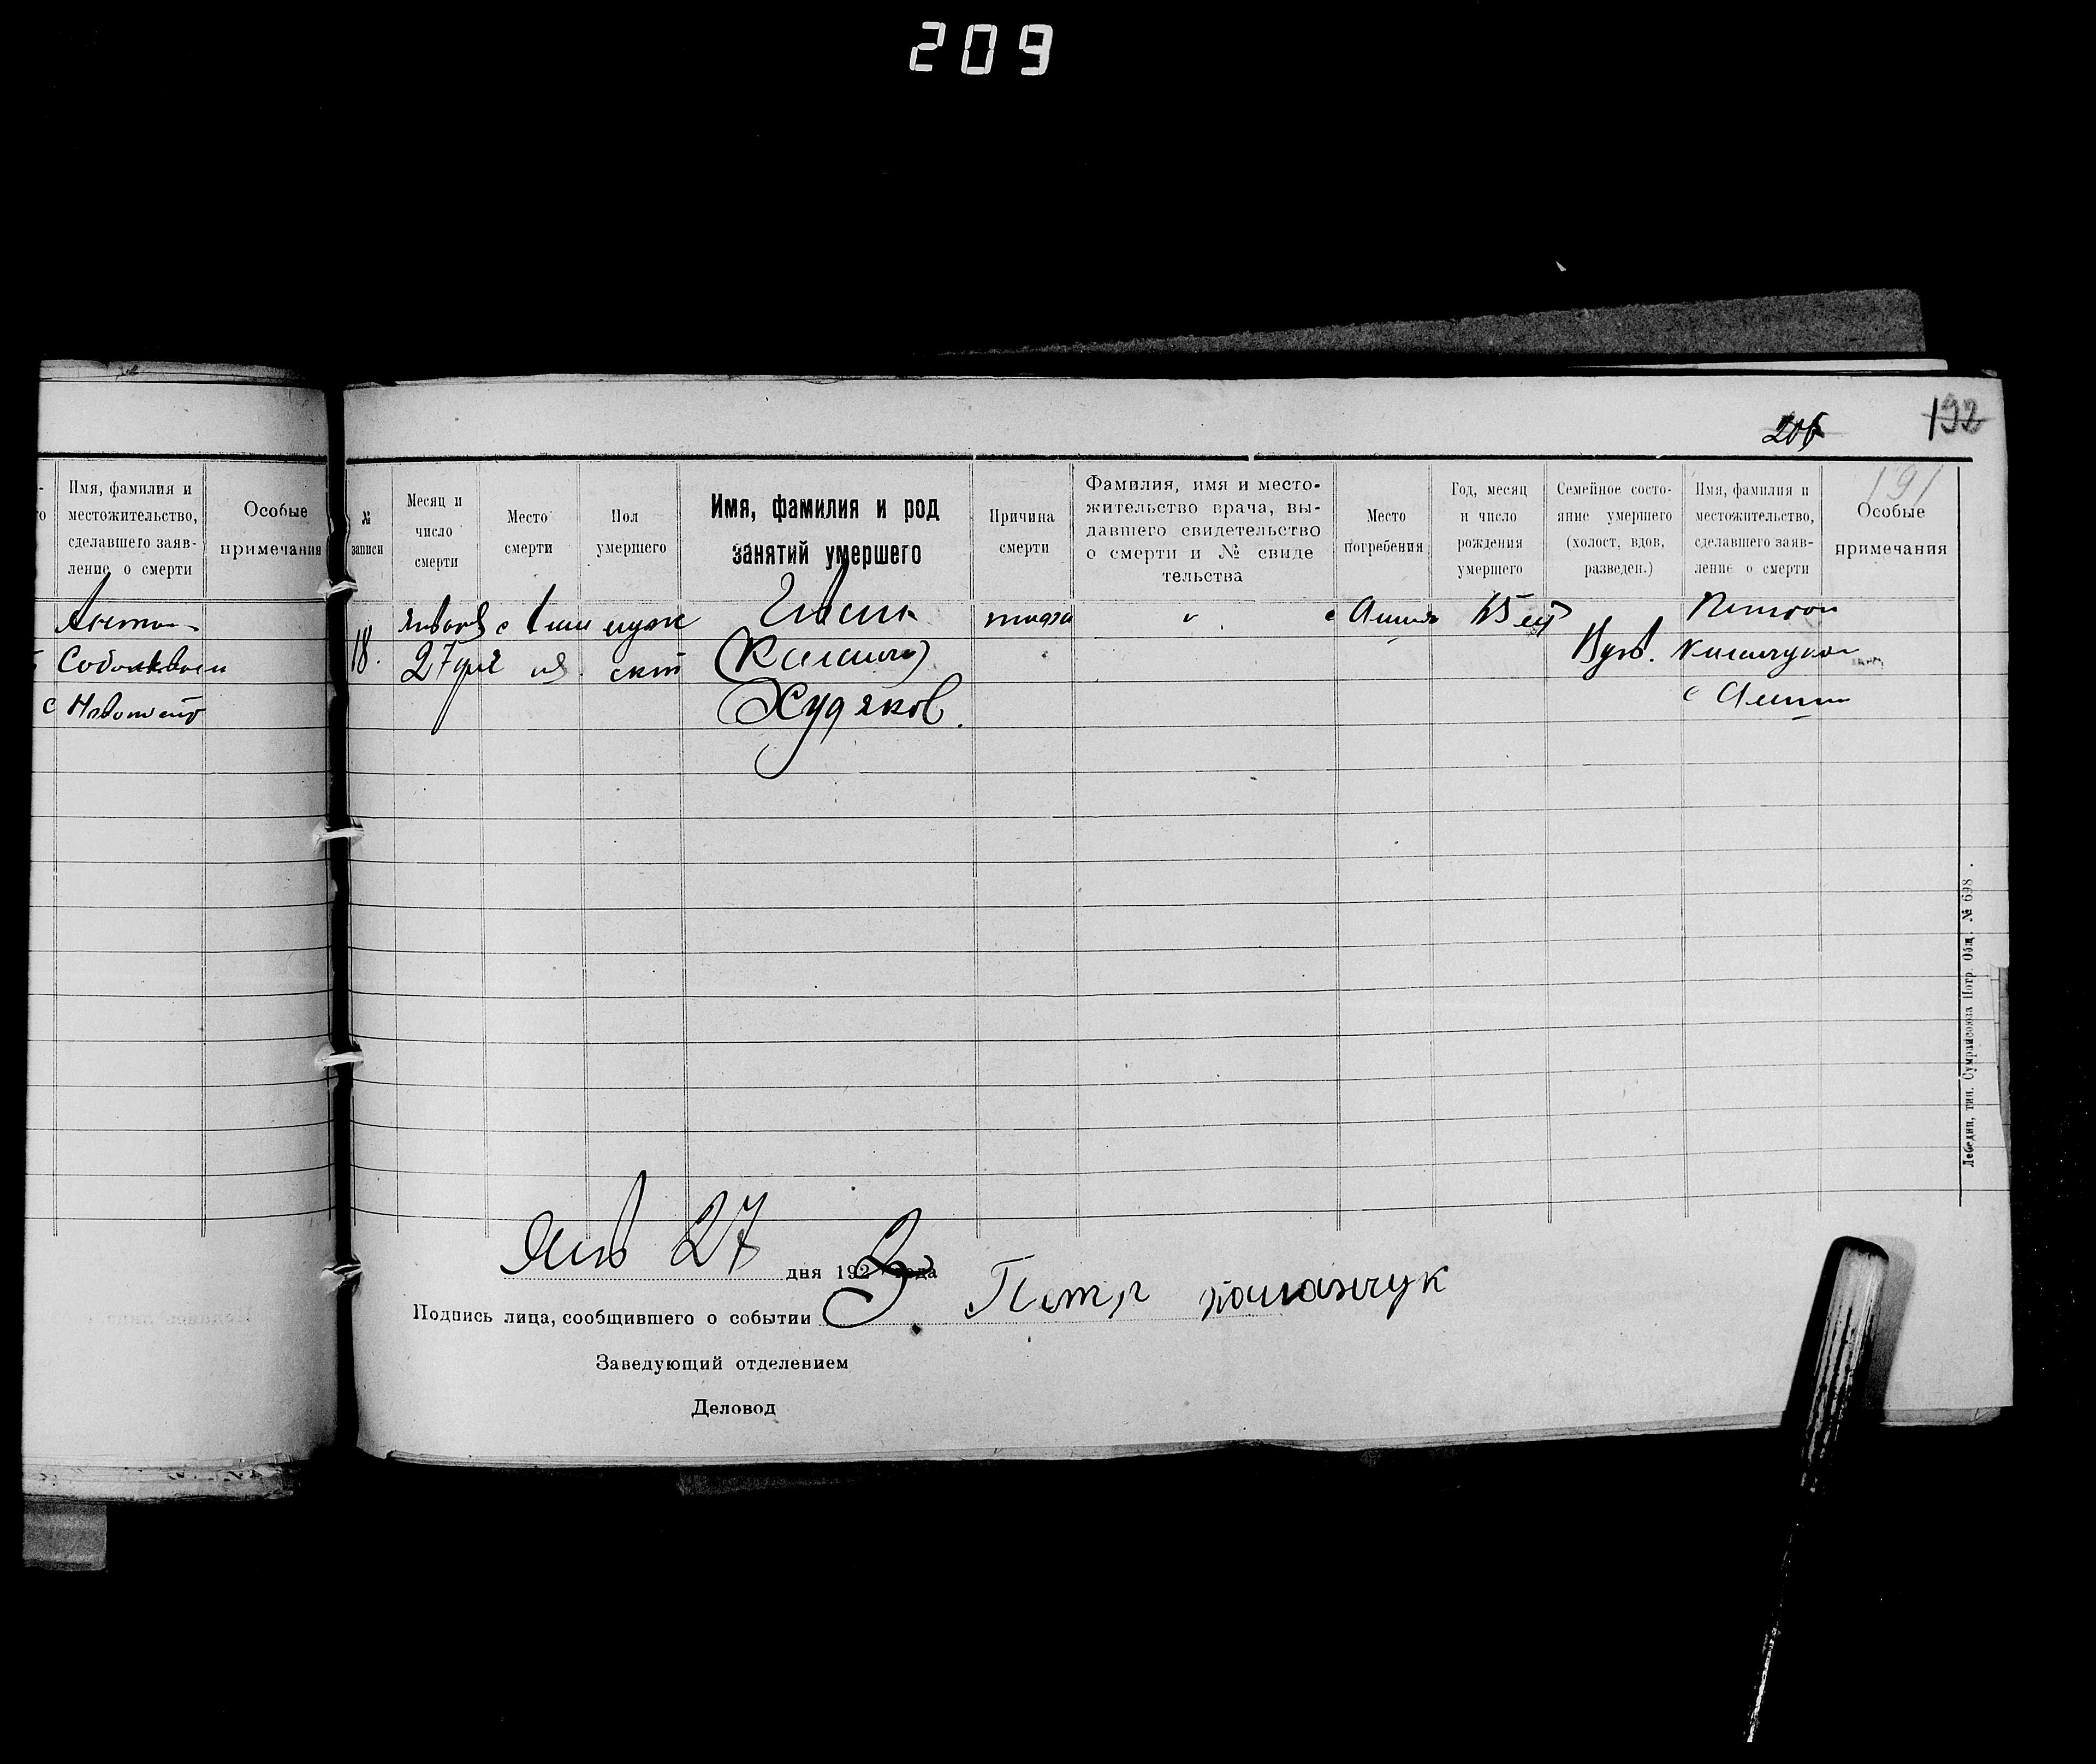 209
206
192
191
Имя, фамилия и
местожительство,
сделавшего заяв-
ление о смерти
Особые
примечания
Антон
с
№
записи
Месяц и
число
смерти
Место
смерти
Пол
умершего
Имя, фамилия и род
занятий умершего
Причина
смерти
Фамилия, имя и место-
жительство врача, вы-
давшего свидетельство
о смерти и № свиде
тельства
Место
погребения
Год, месяц
и число
рождения
умершего
Семейное состо-
яние умершего
(холост, вдов,
разведен.)
Имя, фамилия и
местожительство,
сделавшего заяв-
ление о смерти
Особые
примечания
18.
января
27 дня
с
муж
ской
Худяков.
с
65 лет
Вдов.
с
Янв 27 дня 192 года
Подпись лица, сообщившего о событии
Петр
Заведующий отделением
Деловод
Лебедин, тип. Сумрайсоюза Потр. Общ. № 698.